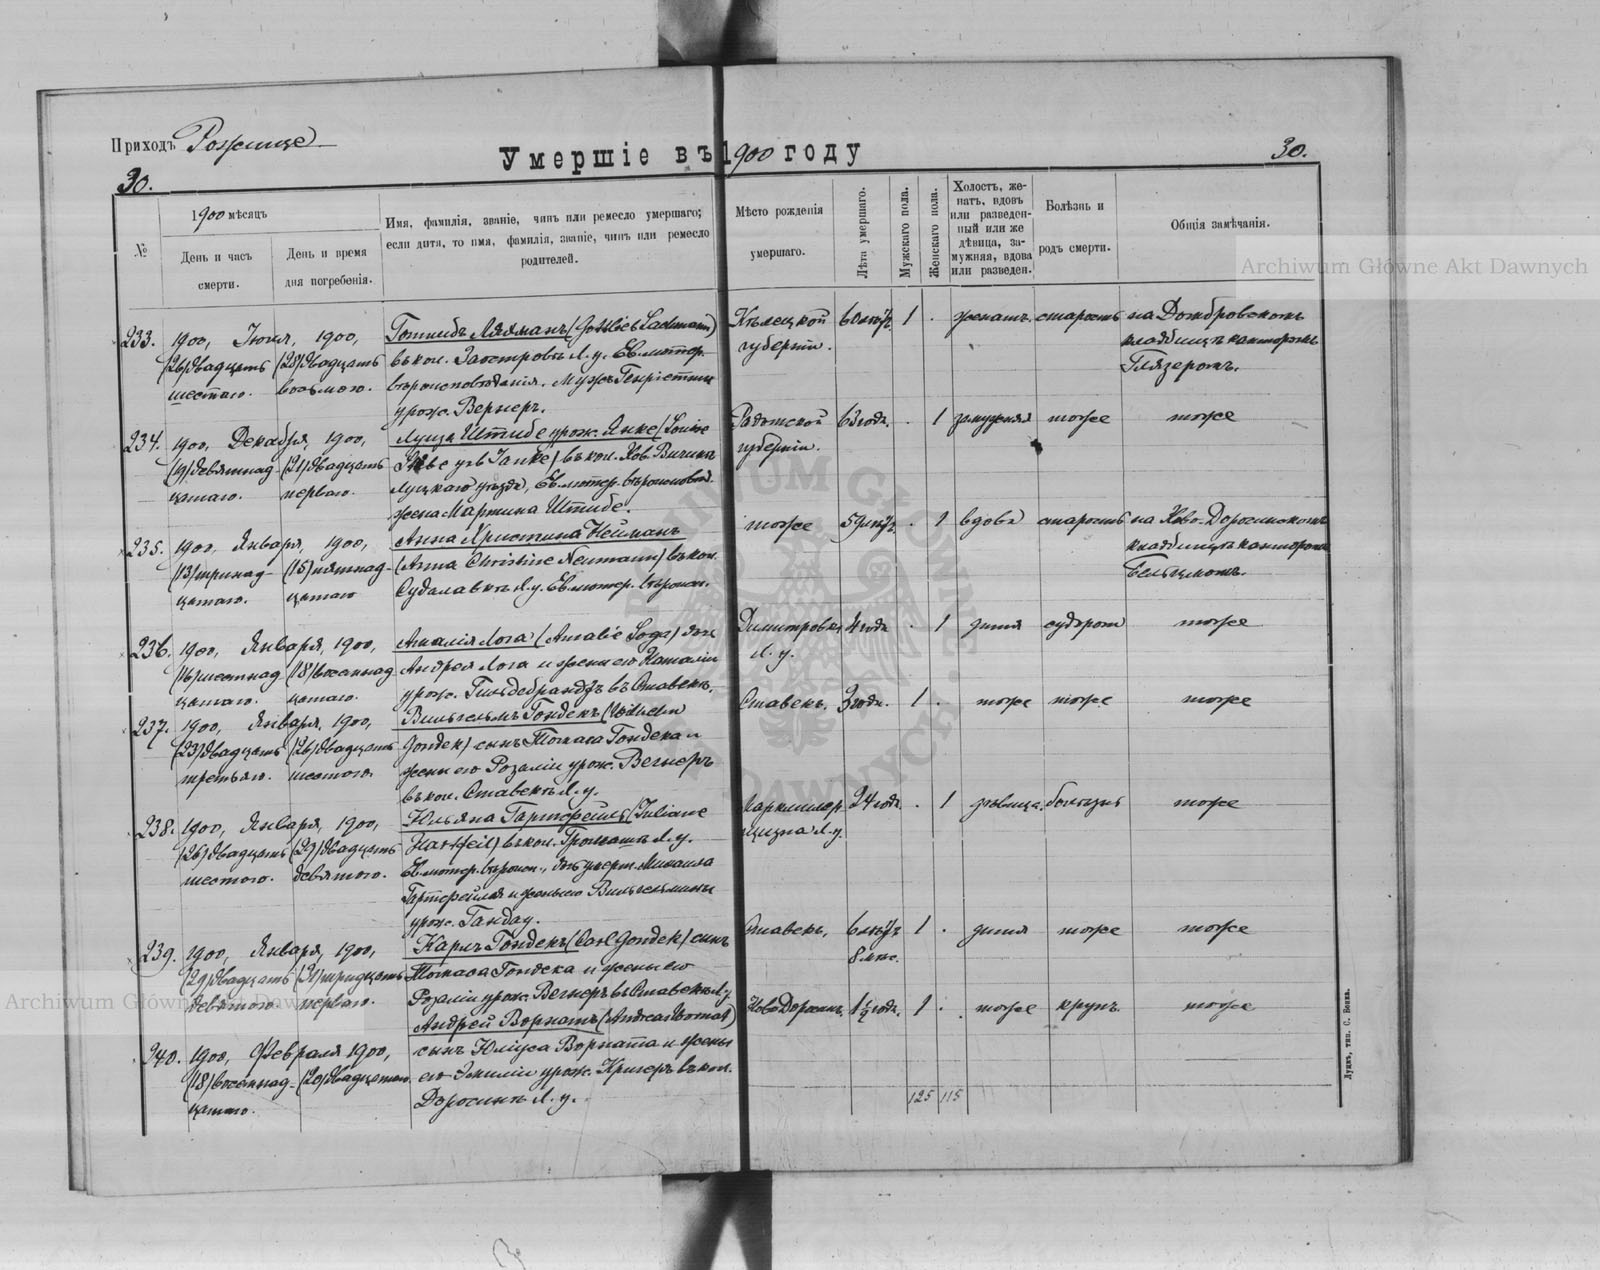 Приходъ Рожище
Умершіе въ 1900 году
30.
30.
№
1900 мѣсяцъ
День и часъ смерти.
День и время дня погребенія.
Имя, фамилія, званіе, чинъ или ремесло умершаго;
если дитя, то имя, фамилія, званіе, чинъ или ремесло
родителей.
Мѣсто рожденія
умершаго.
Лѣта умершаго.
Мужскаго пола.
Женскаго пола.
Холостъ, же-
натъ, вдовъ
или разведен-
ный или же
дѣвица, за-
мужняя, вдова
или разведен.
Болѣзнь и
родъ смерти.
Общія замѣчанія.
233.
1900, Іюля, 1900,
(26) двадцать (28) двадцать
шестаго. восьмого.
Готлибъ Ляхманъ (Gottlieb Lachmann)
въ кол. Заостровъ Л. у. Ев. лютер.
вѣроисповѣданія. Мужъ Генріетты
урож. Вернеръ.
Кѣлецкой
губерніи.
60 лѣтъ
1
.
женатъ.
старость
на Домбровскомъ
кладбищѣ канторомъ
Глязеромъ.
234.
1900, Декабря, 1900,
(19) девятнад- (21) двадцать
цатаго. перваго.
Луиза Штибе урож. Янке (Louise
Stibe geb Janke) въ кол.
Луцкаго уѣзда, Ев. лютер. вѣроисповѣд.
жена Мартина Штибе.
Радомской
губерніи.
63 года.
.
1
замужняя
тоже
тоже
235.
1900, Января, 1900,
(13) тринад- (15) пятнад-
цатаго. цатаго
Анна Христина Нейманъ
(Anna Christine Neumann) въ кол.
Л. у. Ев. лютер. вѣроисп.
тоже
59 лѣтъ
.
1
вдова
старость
на Ново-Доросинскомъ
кладбищѣ канторомъ
236.
1900, Января, 1900,
(16) шестнад- (18) восемнад-
цатаго. цатаго.
Амалія Лога (Amalie Loga) дочь
Андрея Лога и жены его Наталіи
урож. Гильдебрандтъ въ Ставекъ.
Димитровка
Л. у.
4 года
.
1
дитя
судороги
тоже
237.
1900, Января, 1900,
(23) двадцать (26) двадцать
третьяго. шестого.
Вильгельмъ Гондекъ (Wilhelm
Gondek) сынъ Томаса Гондека и
жены его Розаліи урож. Вегнеръ
въ кол. Ставекъ Л. у.
Ставекъ,
3 года.
1
.
тоже
тоже
тоже
238.
1900, Января, 1900,
(26) двадцать (29) двадцать
шестого. девятого.
Юльяна Гартфейль (Juliane
Hartfeil) въ кол. Л. у.
Ев. лютер. вѣроисп., дочь умерш. Михаила
Гартфейля и жены его Вильгельмины
урож. Гандау.
Л. у.
24 года.
.
1
дѣвица
болѣзнь
тоже
239.
1900, Января, 1900,
(29) двадцать (31) тридцать
девятого. перваго.
Карлъ Гондекъ (Carl Gondek) сынъ
Томаса Гондека и жены его
Розаліи урож. Вегнеръ въ Ставекъ Л. у.
Ставекъ,
6 лѣтъ
8 мѣс.
1
.
дитя
тоже
тоже
240.
1900, Февраля 1900,
(18) восемнад- (20) двадцатаго.
цатаго.
Андрей Ворнатъ (Andreas Wornat)
сынъ Юліуса Ворната и жены
его Эмиліи урож. Кригеръ въ кол.
Доросинъ Л. у.
Ново Доросинъ.
1½ года.
1
.
тоже
крупъ.
тоже
125
115
Луцкъ, тип. С. Бокка.
Archiwum Główne Akt Dawnych
Archiwum Główne Akt Dawnych
ARCHIWUM GŁÓWNE AKT DAWNYCH